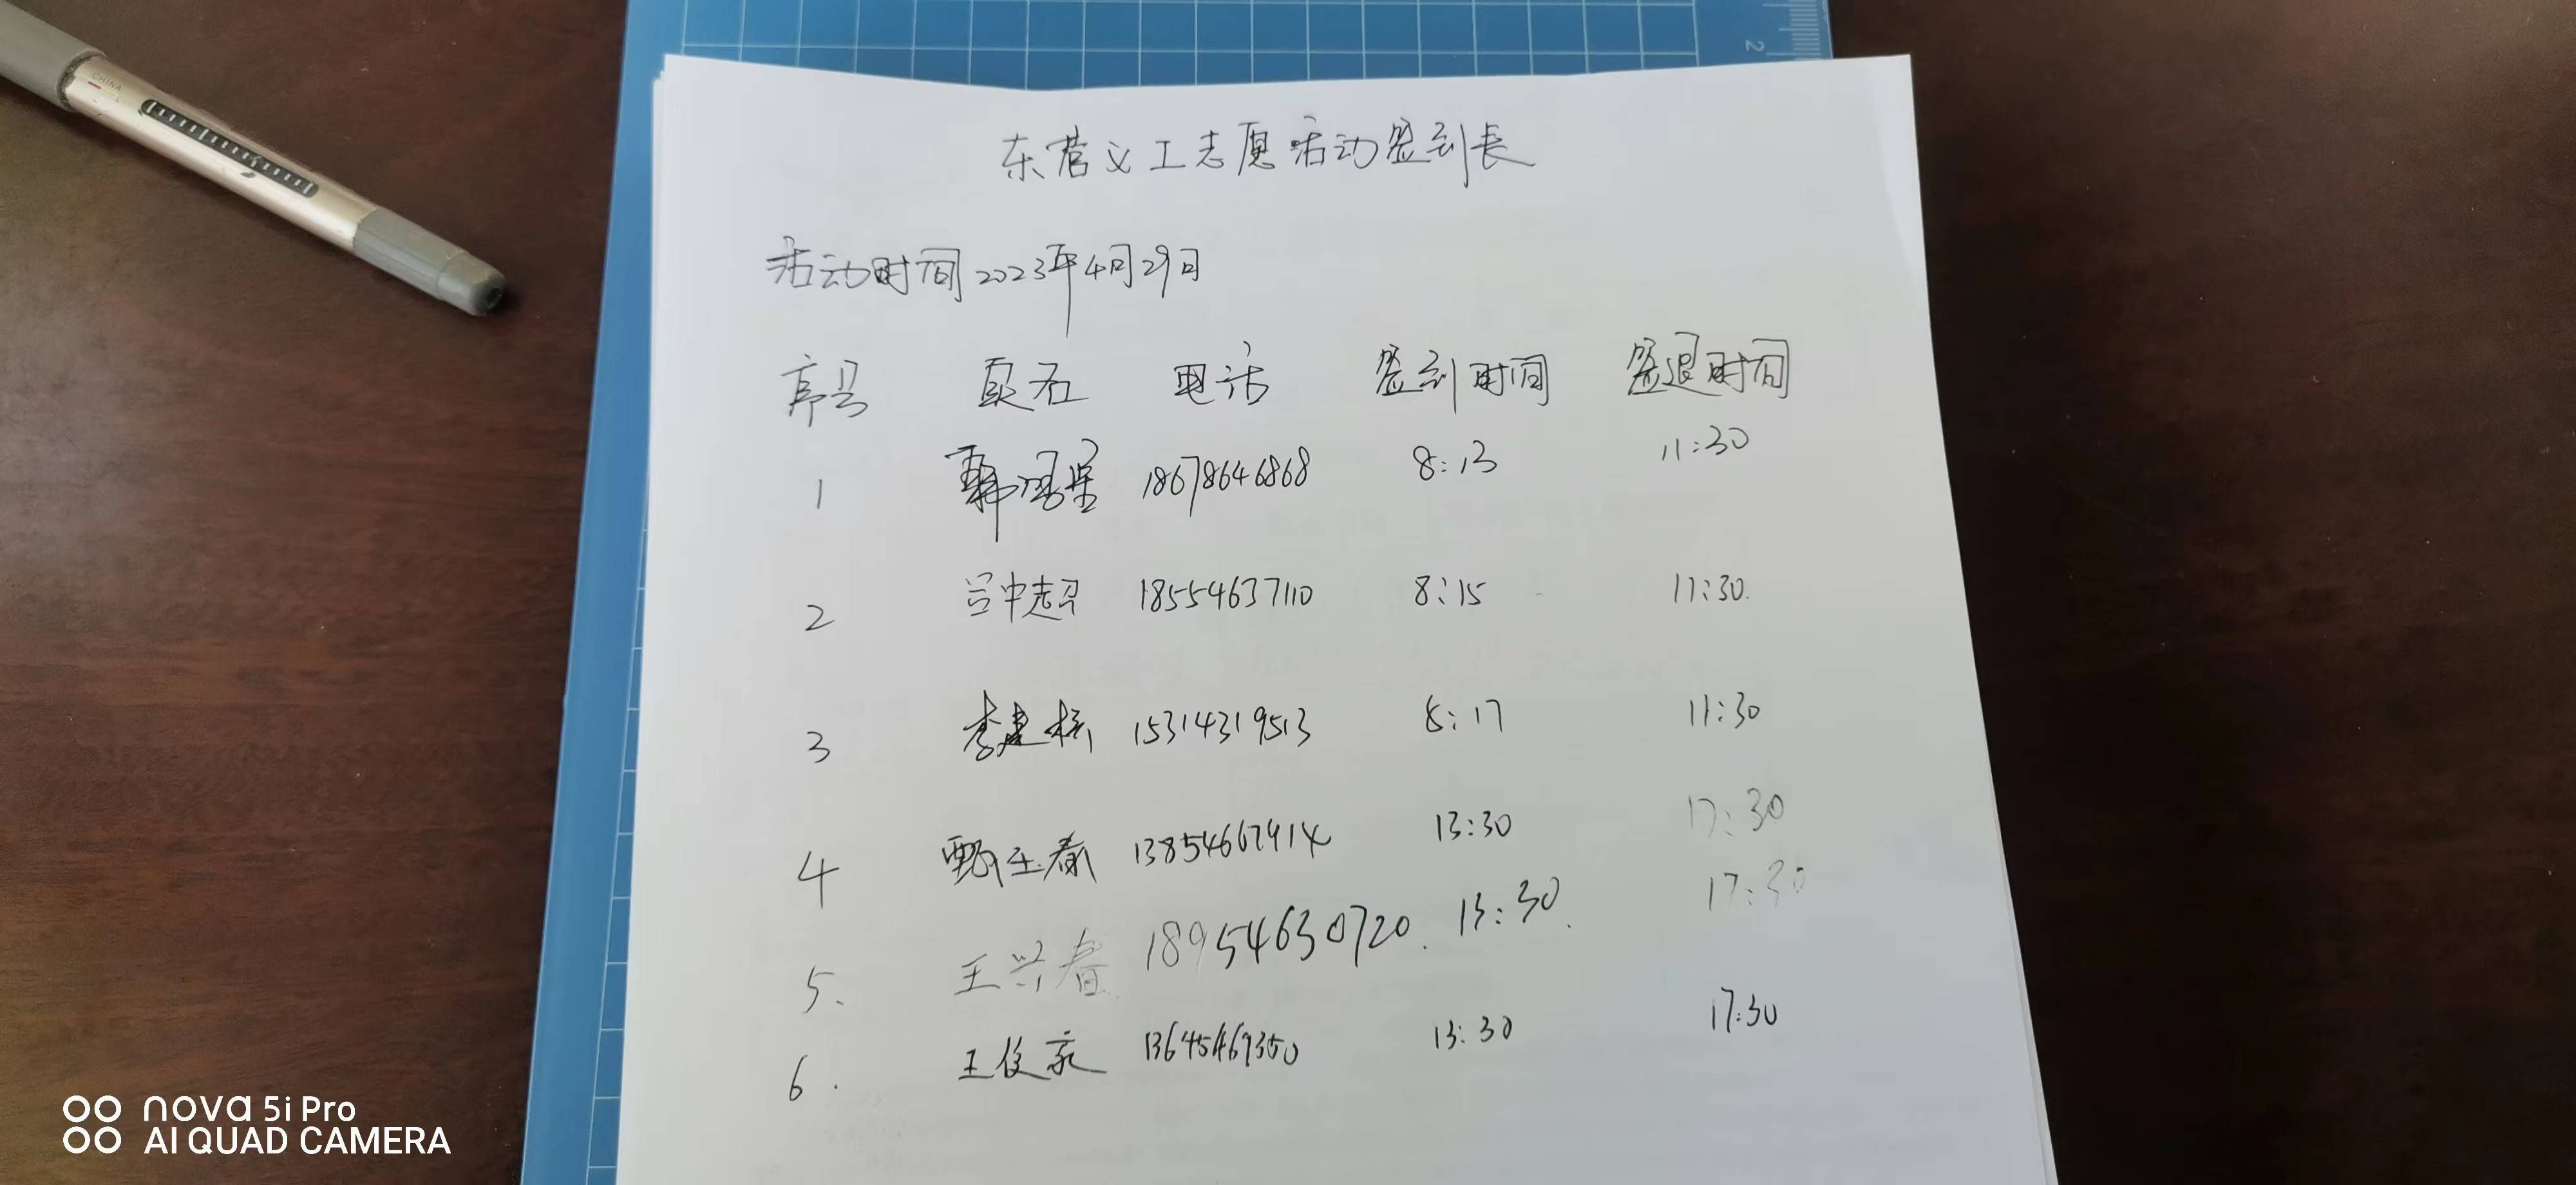 CHINA
2
东营义工志愿活动签到表
活动时间2023年4月29日
序号 真名 电话 签到时间 签退时间
1 18678646868 8:13 11:30
2 吕中超 18554637110 8:15 11:30.
3 李建 15314319513 8:17 11:30
4 甄玉春 13854667914 13:30 17:30
5. 王兴春 18954630720. 13:30. 17:30
6. 王俊 13645469350 13:30 17:30
nova 5i Pro
AI QUAD CAMERA